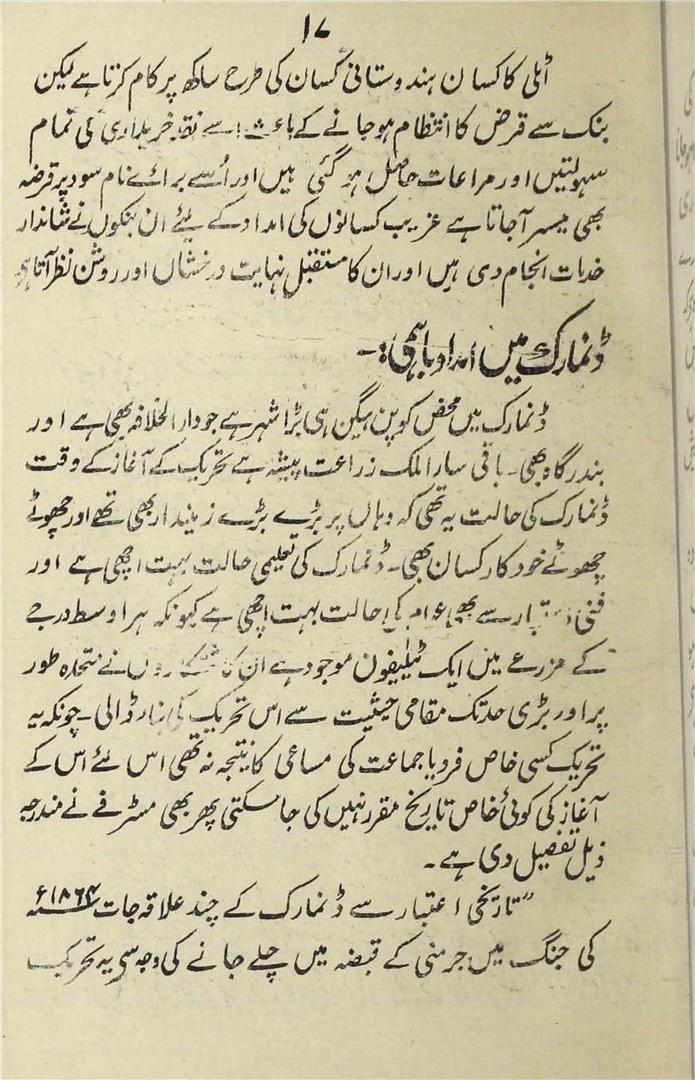 ۱۷
اٹلی کا کسان ہندوستانی کسان کی طرح ساکھ پر کام کرتا ہے لیکن
بنک سے قرض کا انتظام ہو جانے کے باعث اسے نقد خریداری کی تمام
سہولتیں اور مراعات حاصل ہو گئی ہیں اور اُسے برائے نام سود پر قرضہ
بھی میسر آجاتا ہے غریب کسانوں کی امداد کے لیئے ان بنکوں نے شاندار
خدمات انجام دی ہیں اور ان کا مستقبل نہایت درخشاں اور روشن نظر آتا ہے
ڈنمارک میں امداد باہمی :۔
ڈنمارک میں محض کوپن ہیگن ہی بڑا شہر ہے جو دارالخلافہ بھی ہے اور
بندرگاہ بھی۔ باقی سارا ملک زراعت پیشہ ہے تحریک کے آغاز کے وقت
ڈنمارک کی حالت یہ تھی کہ وہاں پر بڑے بڑے زمیندار بھی تھے اور چھوٹے
چھوٹے خود کار کسان بھی۔ ڈنمارک کی تعلیمی حالت بہت اچھی ہے اور
فنی اعتبار سے بھی عوام کی حالت بہت اچھی ہے کیونکہ ہر اوسط درجے
کے مزرعے میں ایک ٹیلیفون موجود ہے ان کاشتکاروں نے متحدہ طور
پر اور بڑی حد تک مقامی حیثیت سے اس تحریک کی بنا ڈالی۔ چونکہ یہ
تحریک کسی خاص فرد یا جماعت کی مساعی کا نتیجہ نہ تھی اس لئے اس کے
آغاز کی کوئی خاص تاریخ مقرر نہیں کی جا سکتی پھر بھی مسٹر فے نے مندرجہ
ذیل تفصیل دی ہے۔
"تاریخی اعتبار سے ڈنمارک کے چند علاقہ جات ۱۸۶۴ء
کی جنگ میں جرمنی کے قبضہ میں چلے جانے کی وجہ سے یہ تحریک